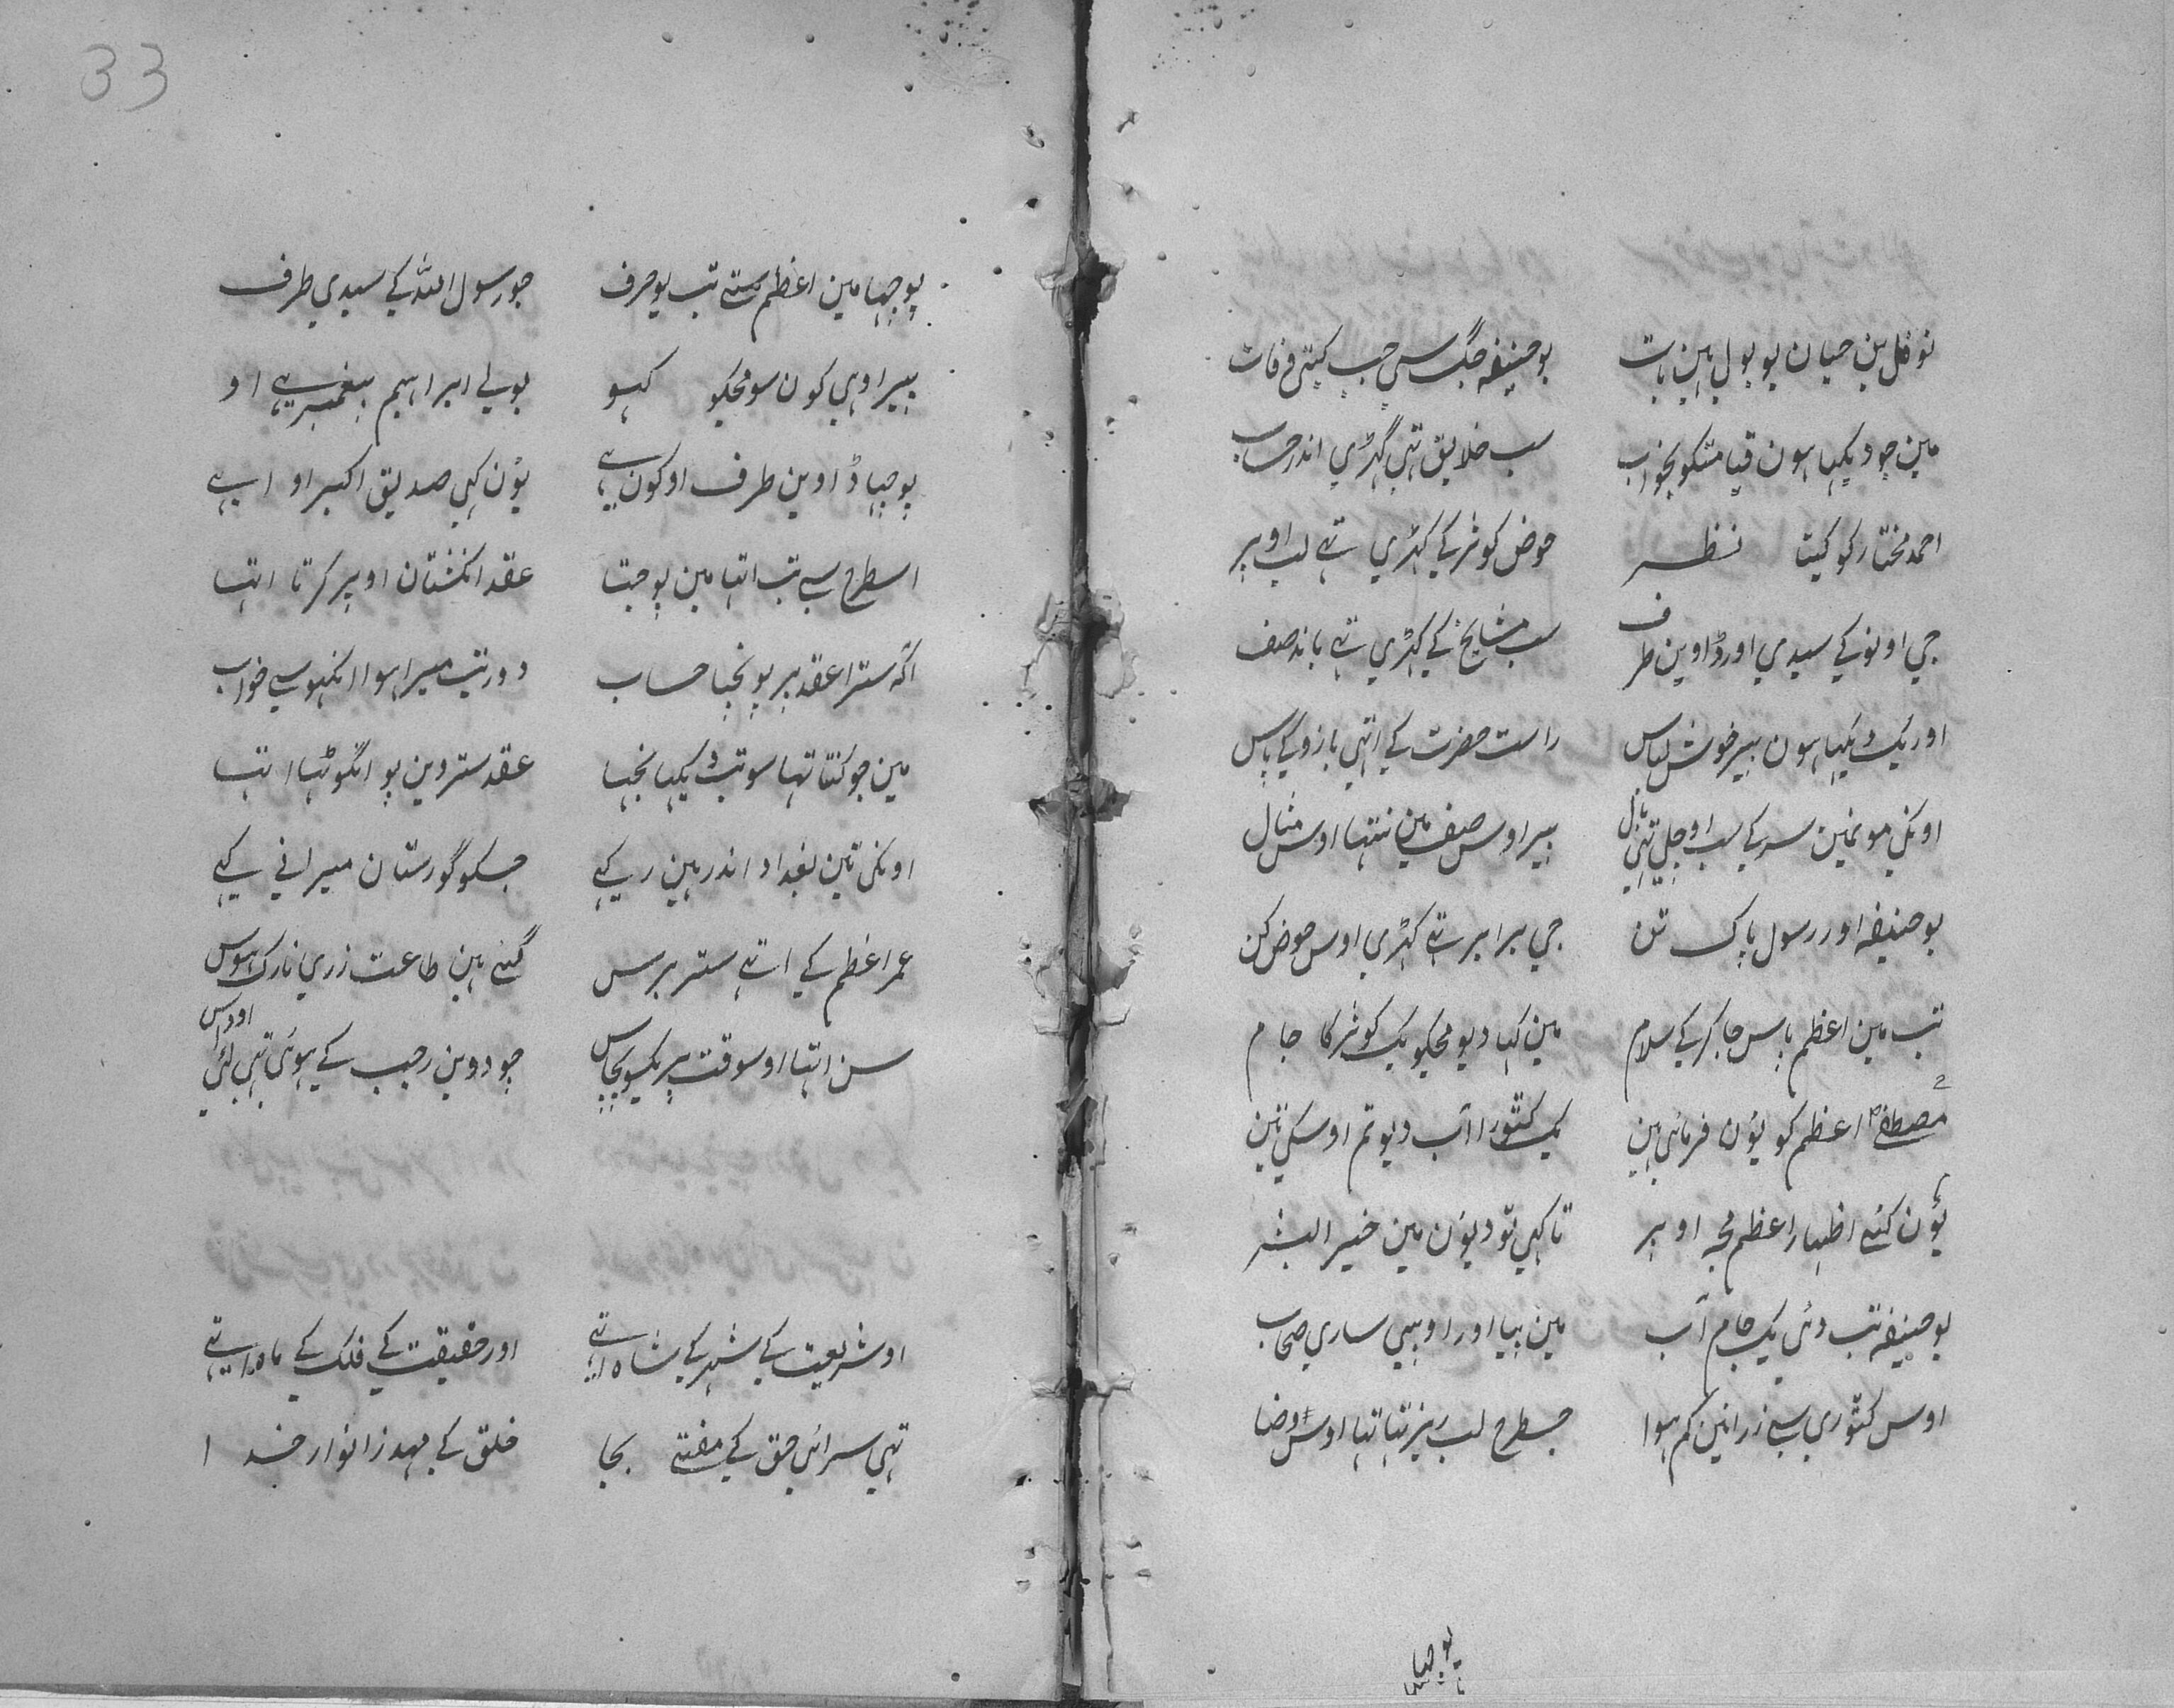 نوفل بن حیان یو بول ہین بات بوحنیفہ جگ سی جب کیتی وفات
مین جو دیکہا ہون قیامتکو بخواب سب خلایق تہی کہڑی اندر حساب
احمد مختار کو کیتا نظر حوض کوثر کے کہڑی تہے لب اوپر
جی اونو کے سیدی اور ڈاوین طرف سب مشایخ کے کہڑی تہے باند صف
اور یک دیکہیا ہون پیر خوش لباس راست حضرت کے اتہی بازو کے پاس
اونکی موئمین سر کے سب اوجلی تہی بال پیر اوس صف مین نتہا اوس مثال
بوحنیفہ اور رسول پاک تن جی برابر تہے کہڑی اوس حوض کن
تب مین اعظم پاس جا کر کے سلام مین کہا دیو مجکو یک کوثر کا جام
مصطفےٰ اعظم کو یون فرمائی ہین یک کٹورا آب دیو تم اوسکی تین
یون کئے اظہار اعظم مجہ اوپر تا کہی تو دیون مین خیر البشر
بوحنیفہ تب دئی یک جام آب مین پیا اور او پیی ساری صحاب
اوس کٹوری سے ذرا نین کم ہوا جسطرح لبریز تہا تہا اوس وضا
پوچہا
33
پوچہا مین اعظم ستے تب یو حرف جو رسول اللہ کے سیدی طرف
پیر او ہی کون سو مجکو کہو بولے ابراہیم پیغمبر ہے او
پوچہا ڈاوین طرف او کون ہے یون کہی صدیق اکبر او اہے
اسطرح سے تب اتہا مین پوچہتا عقد انگشتان اوپر کرتا اتہا
اگہ سترا عقد پر پونچہا حساب دور تب میرا ہوا انکہو سے خواب
مین جو گنتا تہا سو تب دیکہا بجہا عقد ستروین پو انگوٹہا اتہا
اونکی تین بغداد اندر مین رکہے جسکو گورستان میرانی کہے
عمر اعظم کے اتہے ستر برس گئے ہین طاعت زری نارک ہوس
سن اتہا اوسوقت پر یکسو پچاس چودوین رجب کے ہوئی تہی لئی اوداس
او شریعت کے شہر کے شاہ اتہے اور حقیقت کے فلک کے ماہ اتہے
تہی سرائی حق کے مفتے بجا خلق کے مہد ز انوار خدا